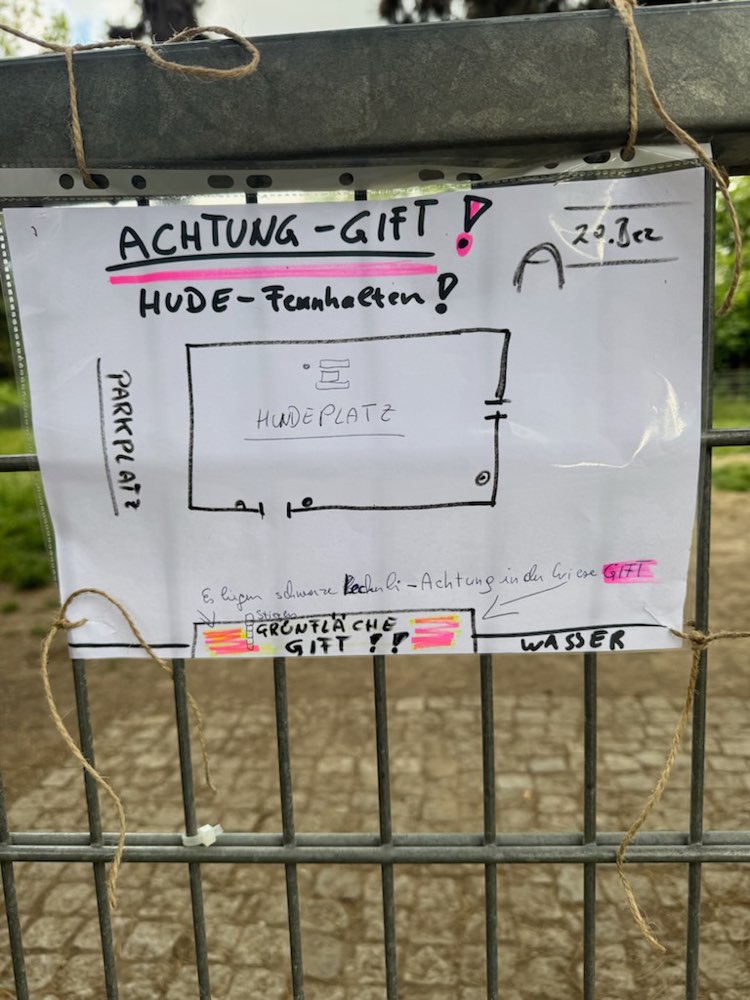 ACHTUNG - GIFT !
20. Bez
HUDE - Fernhalten !
PARKPLATZ
HUNDEPLATZ
Es liegen schwarze Leckerli - Achtung in der Wiese GIFT
Stiegen
GRÜNFLÄCHE
GIFT !!
WASSER